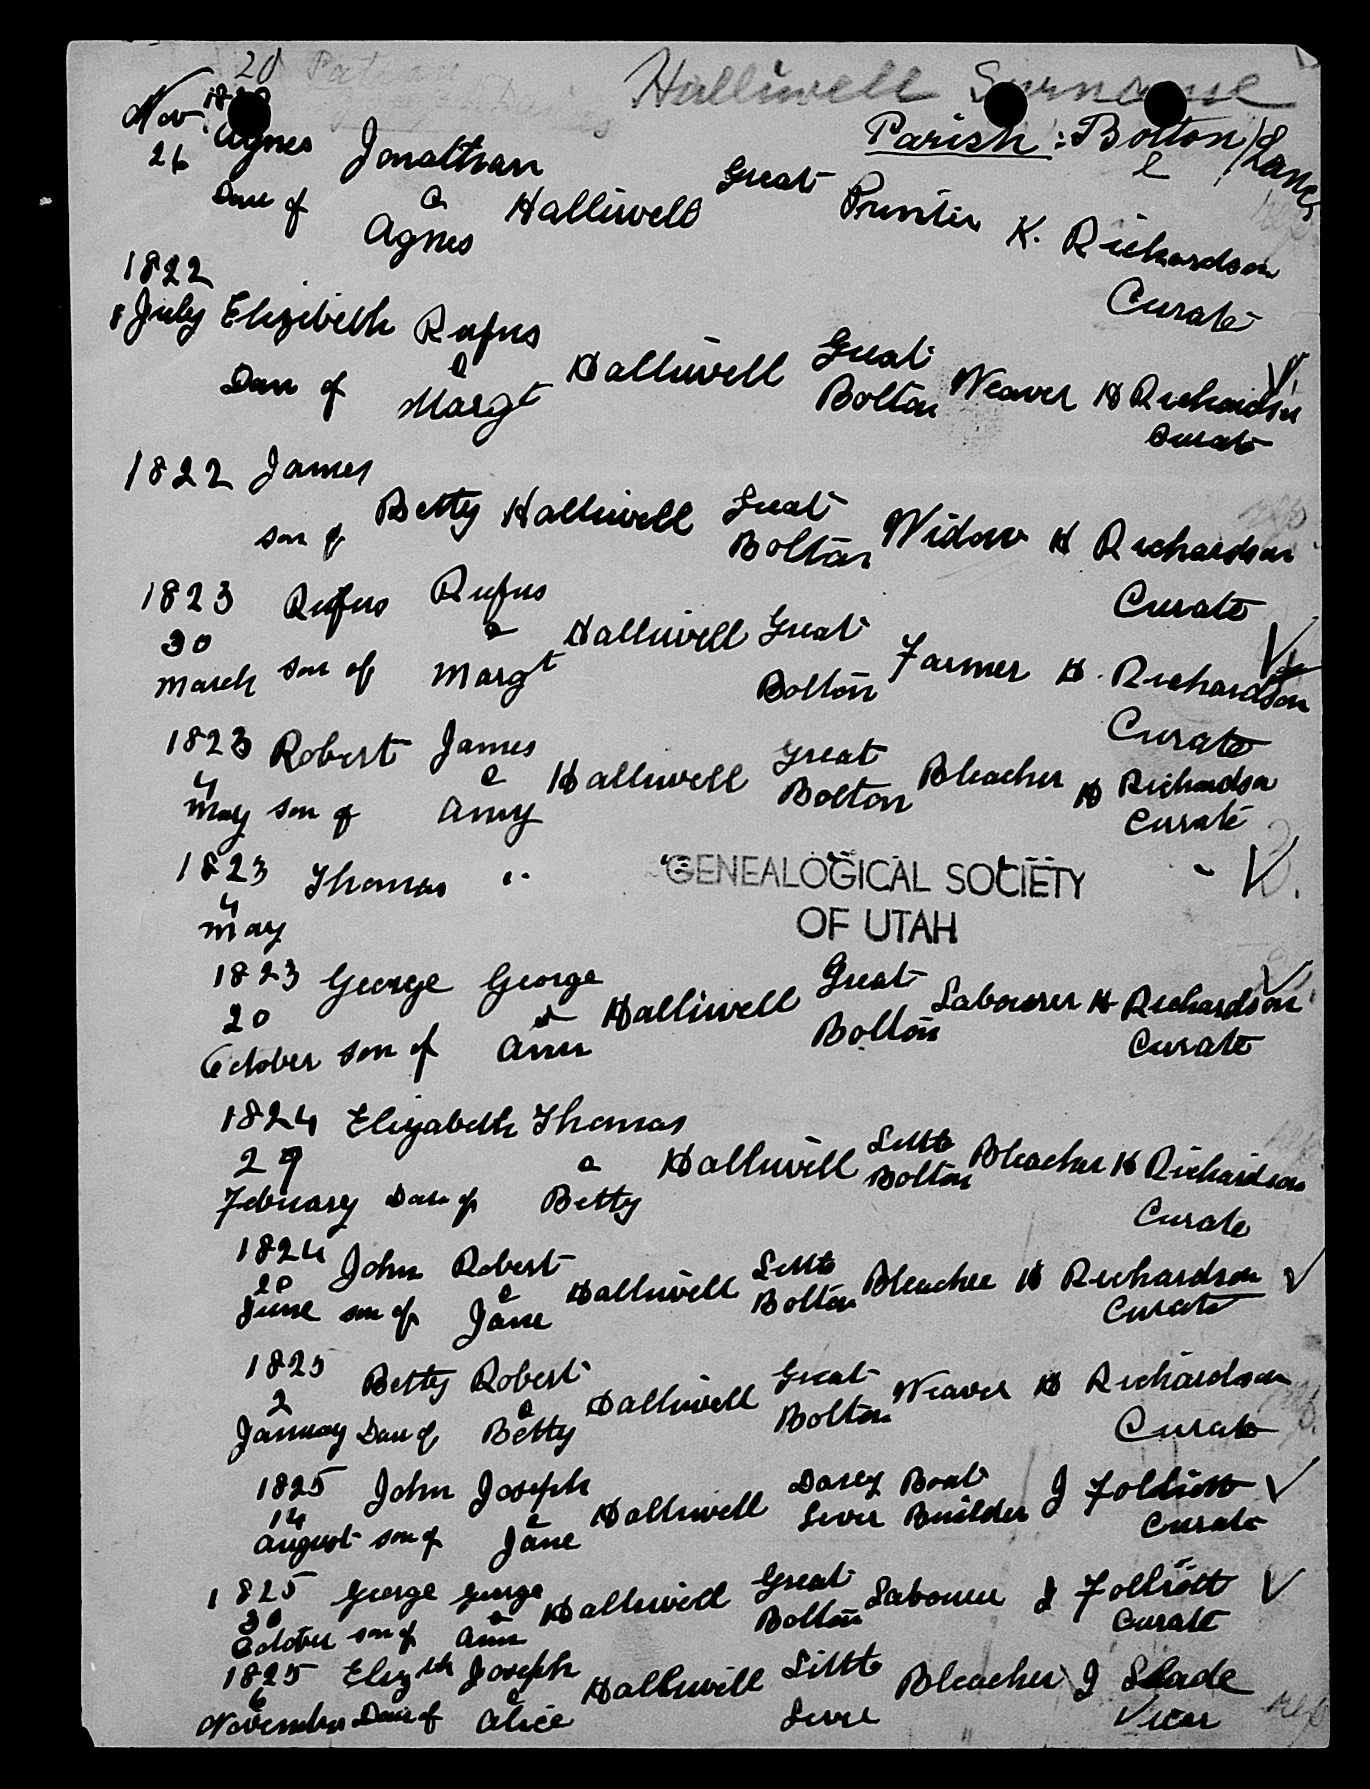 20
Halliwell Surname
Parish : Bolton / Lancs
Nov. 26 Agnes Jonathan
Daur of & Halliwell Great Printer K. Richardson
Agnes Curate
1822
8 July Elizibeth Rufus
Daur of & Halliwell Great Bolton Weaver H Richardson
Margt Curate
1822 James
son of Betty Halliwell Great Bolton Widow H Richardson
Curate
1823 Rufus Rufus
30 & Halliwell Great Bolton Farmer H. Richardson
March son of Margt Curate
1823 Robert James
4 & Halliwell Great Bolton Bleacher H Richardson
May son of Amy Curate
1823 Thomas "
4
May
GENEALOGICAL SOCIETY
OF UTAH
1823 George George
20 & Halliwell Great Bolton Labourer H Richardson
October son of Ann Curate
1824 Elizabeth Thomas
29 & Halliwell Little Bolton Bleacher H Richardson
February Daur of Betty Curate
1824 John Robert
20 & Halliwell Little Bolton Bleacher H Richardson
June son of Jane Curate
1825 Betty Robert
2 & Halliwell Great Bolton Weaver H Richardson
January Daur of Betty Curate
1825 John Joseph
14 & Halliwell Darcy Lever Boat Builder J Folliott
August son of Jane Curate
1825 George George
30 & Halliwell Great Bolton Labourer J Folliott
October son of Ann Curate
1825 Elizth Joseph
6 & Halliwell Little Lever Bleacher J Slade
November Daur of Alice Vicar